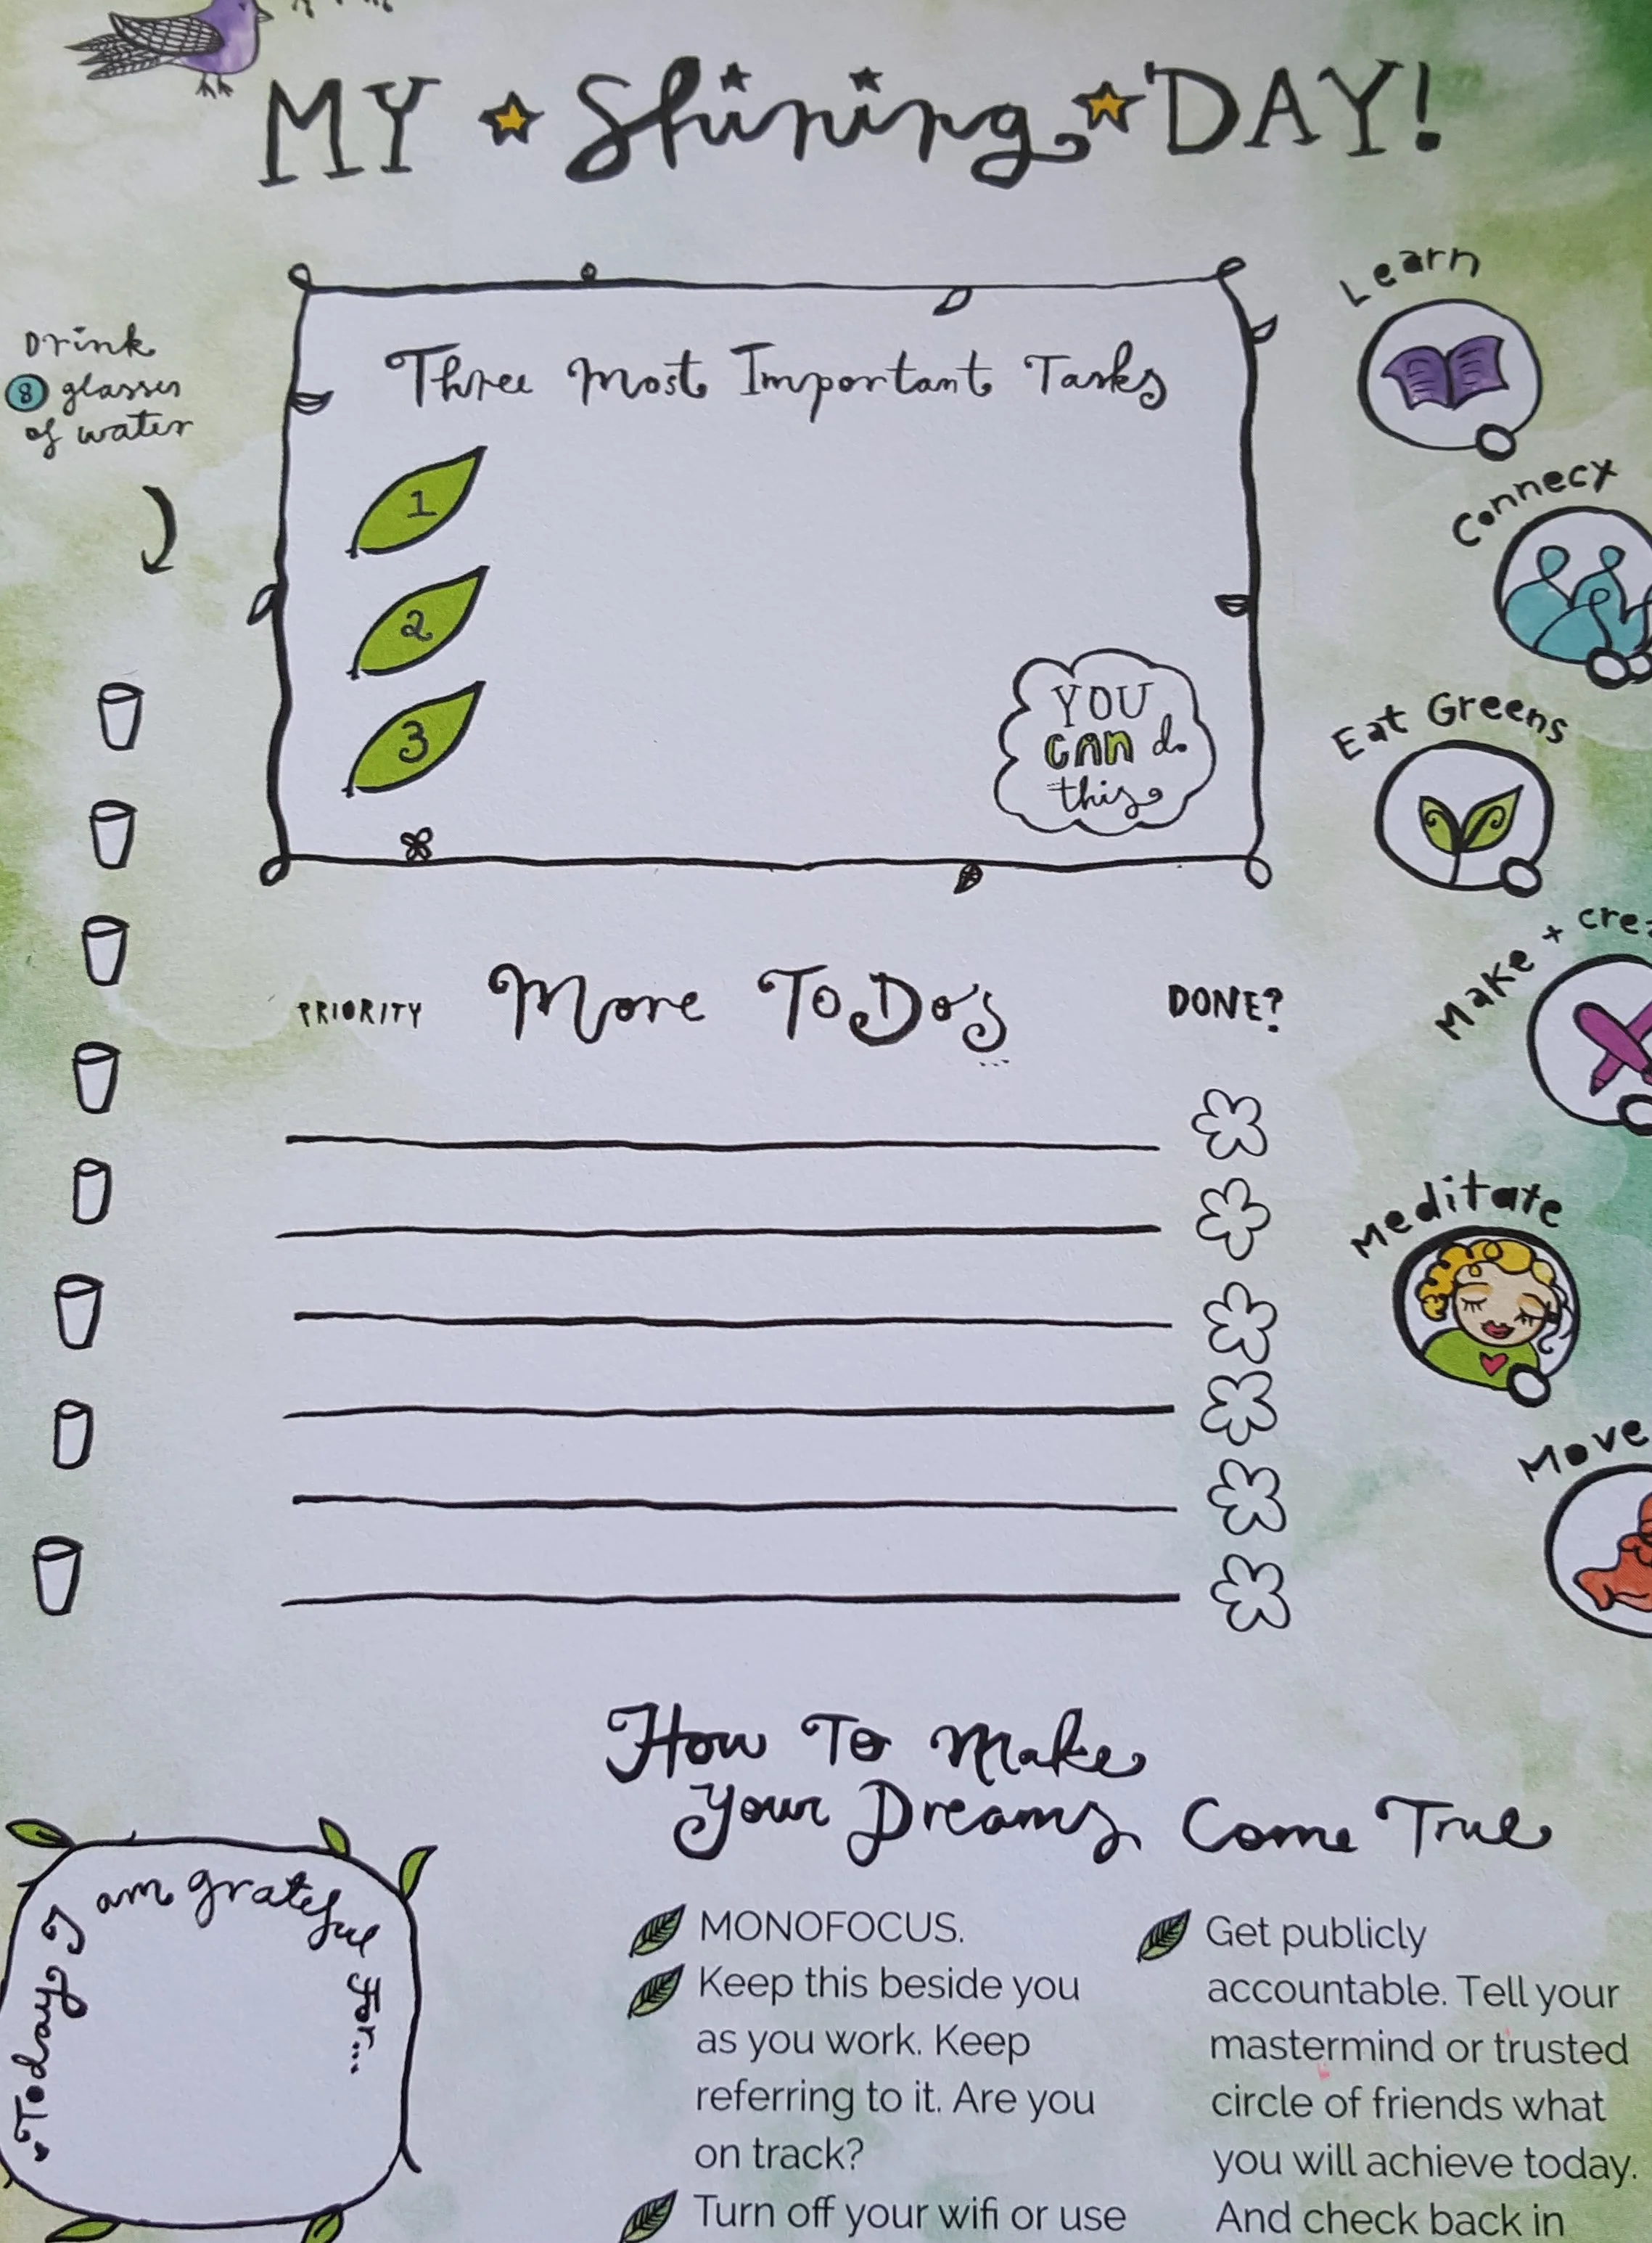 MY Shining DAY!
Drink
8 glasses
of water
Three Most Important Tasks
1
2
3
YOU
CAN do
this
Learn
Connect
Eat Greens
Make + crea
Meditate
Move
PRIORITY More To Do's... DONE?
Today I am grateful For...
How To Make
Your Dreams Come True
MONOFOCUS.
Keep this beside you
as you work. Keep
referring to it. Are you
on track?
Turn off your wifi or use
Get publicly
accountable. Tell your
mastermind or trusted
circle of friends what
you will achieve today.
And check back in